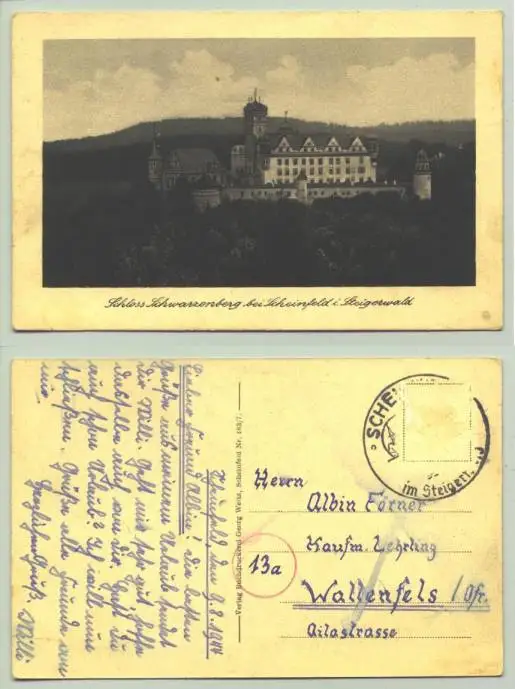 Schloss Schwarzenberg bei Scheinfeld i. Steigerwald
Scheinfeld, den 9.8.1944
Lieber Freund Albin! Die besten
Grüße aus meinem Urlaub sendet
dir Willi. Geht mir sehr gut, hoffe
dasselbe auch von dir. Hast du
auch schon Urlaub? Ich will nun
schließen. Grüße alle Freunde von
mir.
Herzlichen Gruß Willi
Verlag Buchdruckerei Georg Weiss, Scheinfeld Nr. 183/7.
SCHE
im Steigerw
Herrn
Albin Förner
Kaufm. Lehrling
13a
Wallenfels / Ofr.
Gilastrasse